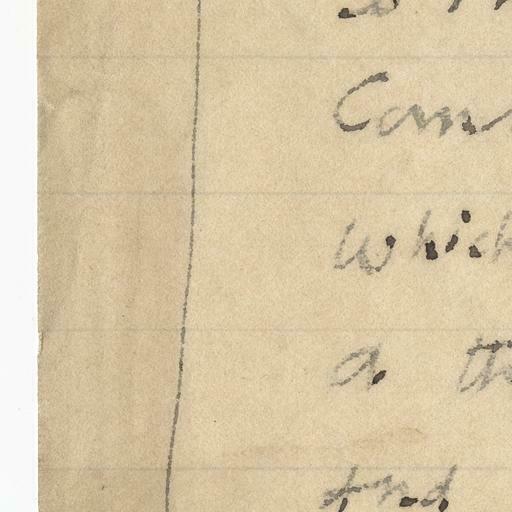 Can
which
a th
and